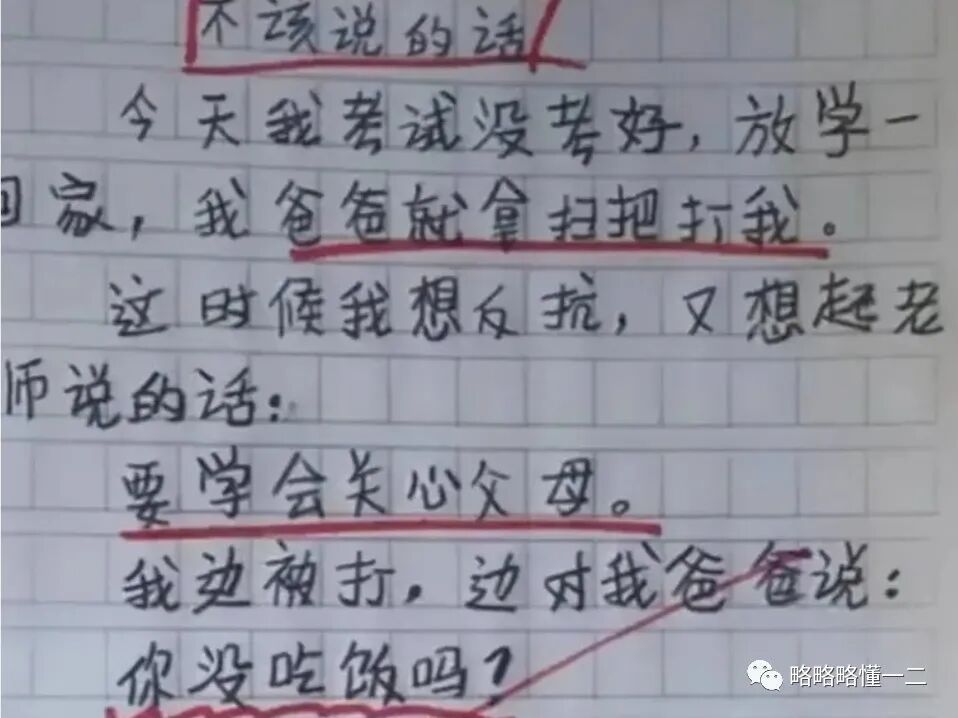 不该说的话
今天我考试没考好,放学一
回家,我爸爸就拿扫把打我。
这时候我想反抗,又想起老
师说的话:
要学会关心父母。
我边被打,边对我爸爸说:
你没吃饭吗?
略略略懂一二